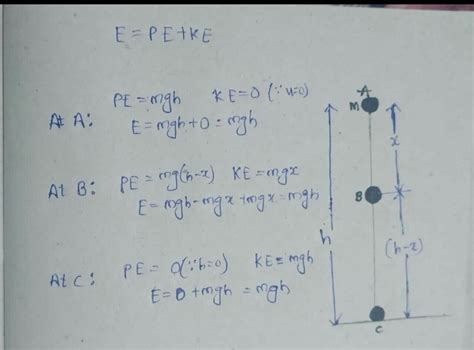 E = PE+KE
PE = mgh KE=0 (∵ u=0)
At A:
E = mgh+0 = mgh
PE = mg(h-x) KE = mgx
At B:
E = mgh-mgx+mgx = mgh
At C: PE = 0(∵h=0) KE = mgh
E = 0+mgh = mgh
A
M
x
B
h
(h-x)
C